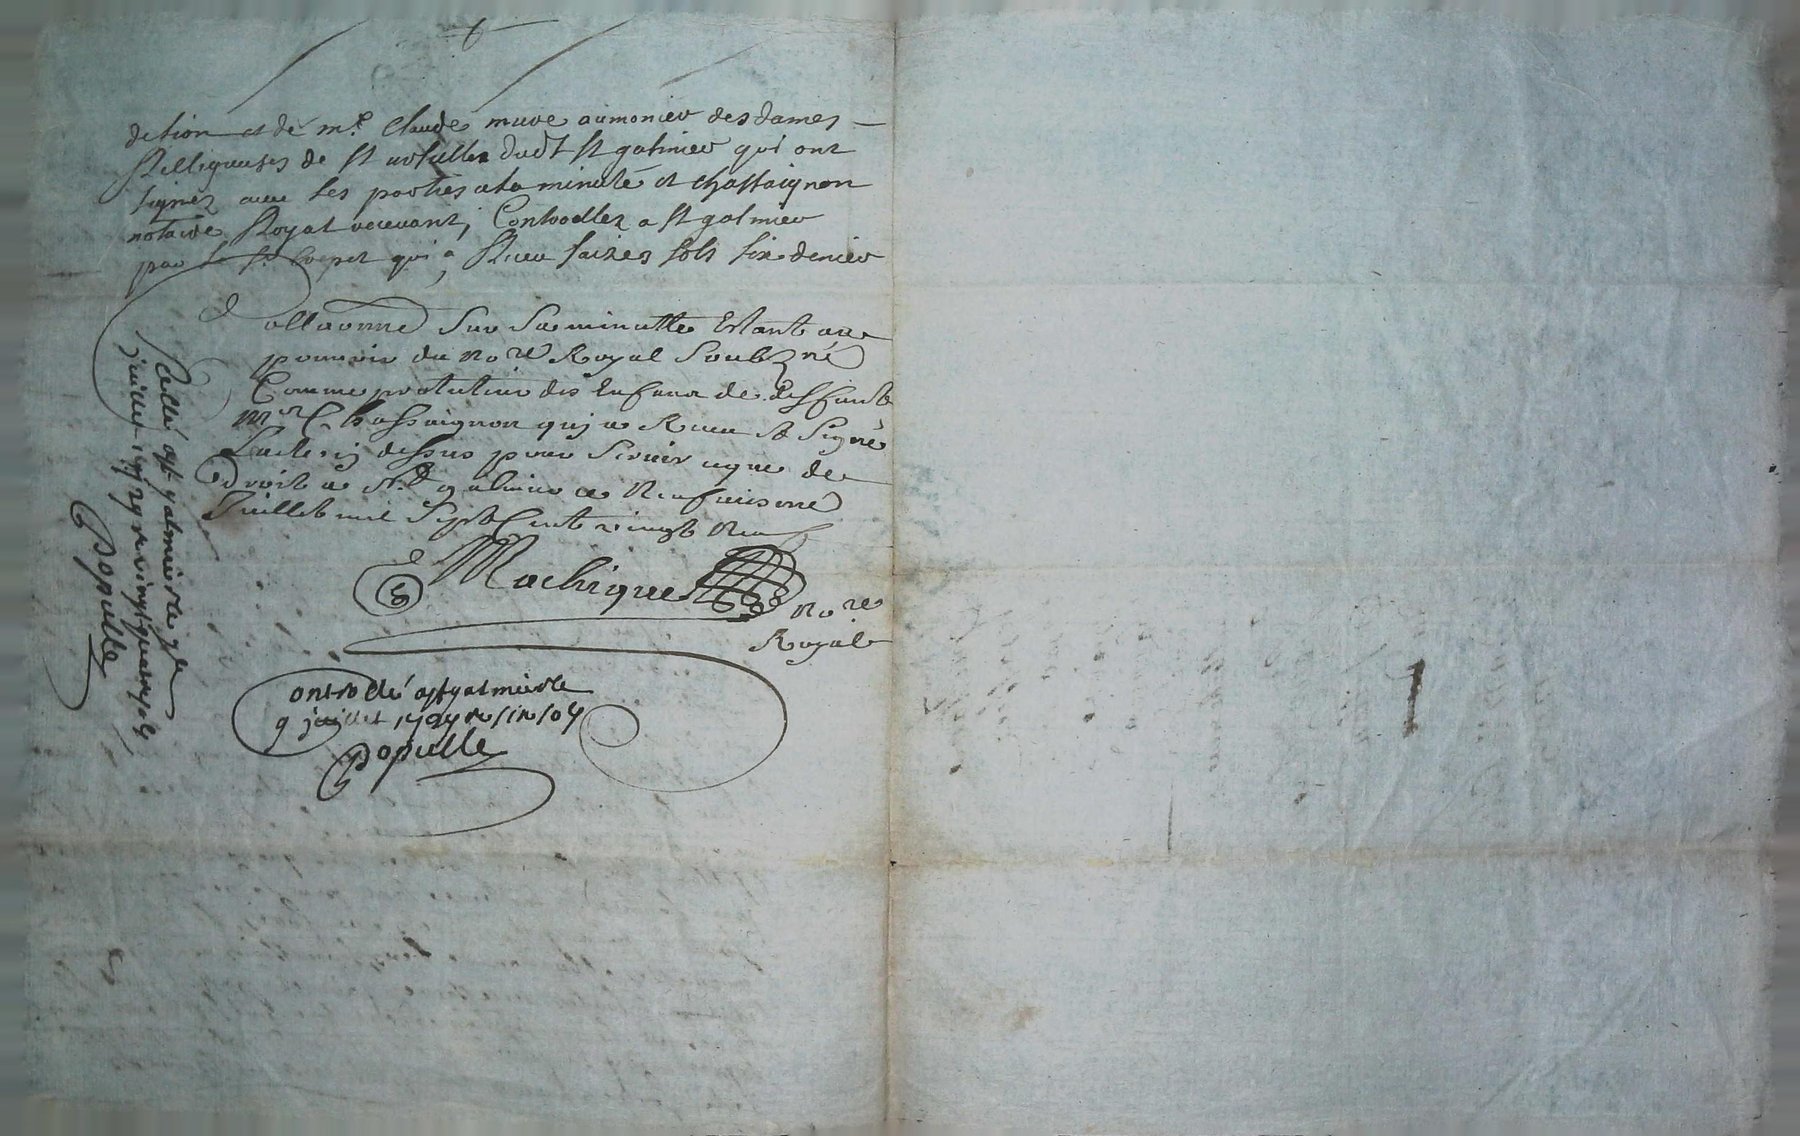 detion et de m.e Claude mure aumonier des dames
Relligeuses de St ursulles dudt St galmier qui ont
signez avec les parties a la minute et Chassaignon
notaire Royal recevant, Controller a St galmier
par le Sr Crepet qui a Receu saizes sols six denier
Collationné sur sa minutte Estant au
pouvoir du nore Royal Soubzné
Comme protuteur des Enfans de deffunt
Mre Chassaignon quj a Receu et Signé
Lacte cy dessus pour Servir a que de
Droit a St galmier ce Neufviesme
Juillet mil Sept Cent vingt Neuf
Machigues
nore
Royal
Controllé a St galmier le
9 juillet 1729 R
Populle
Scellé a St galmier le 9e
juillet 1729 R vingt quatre sols
Populle